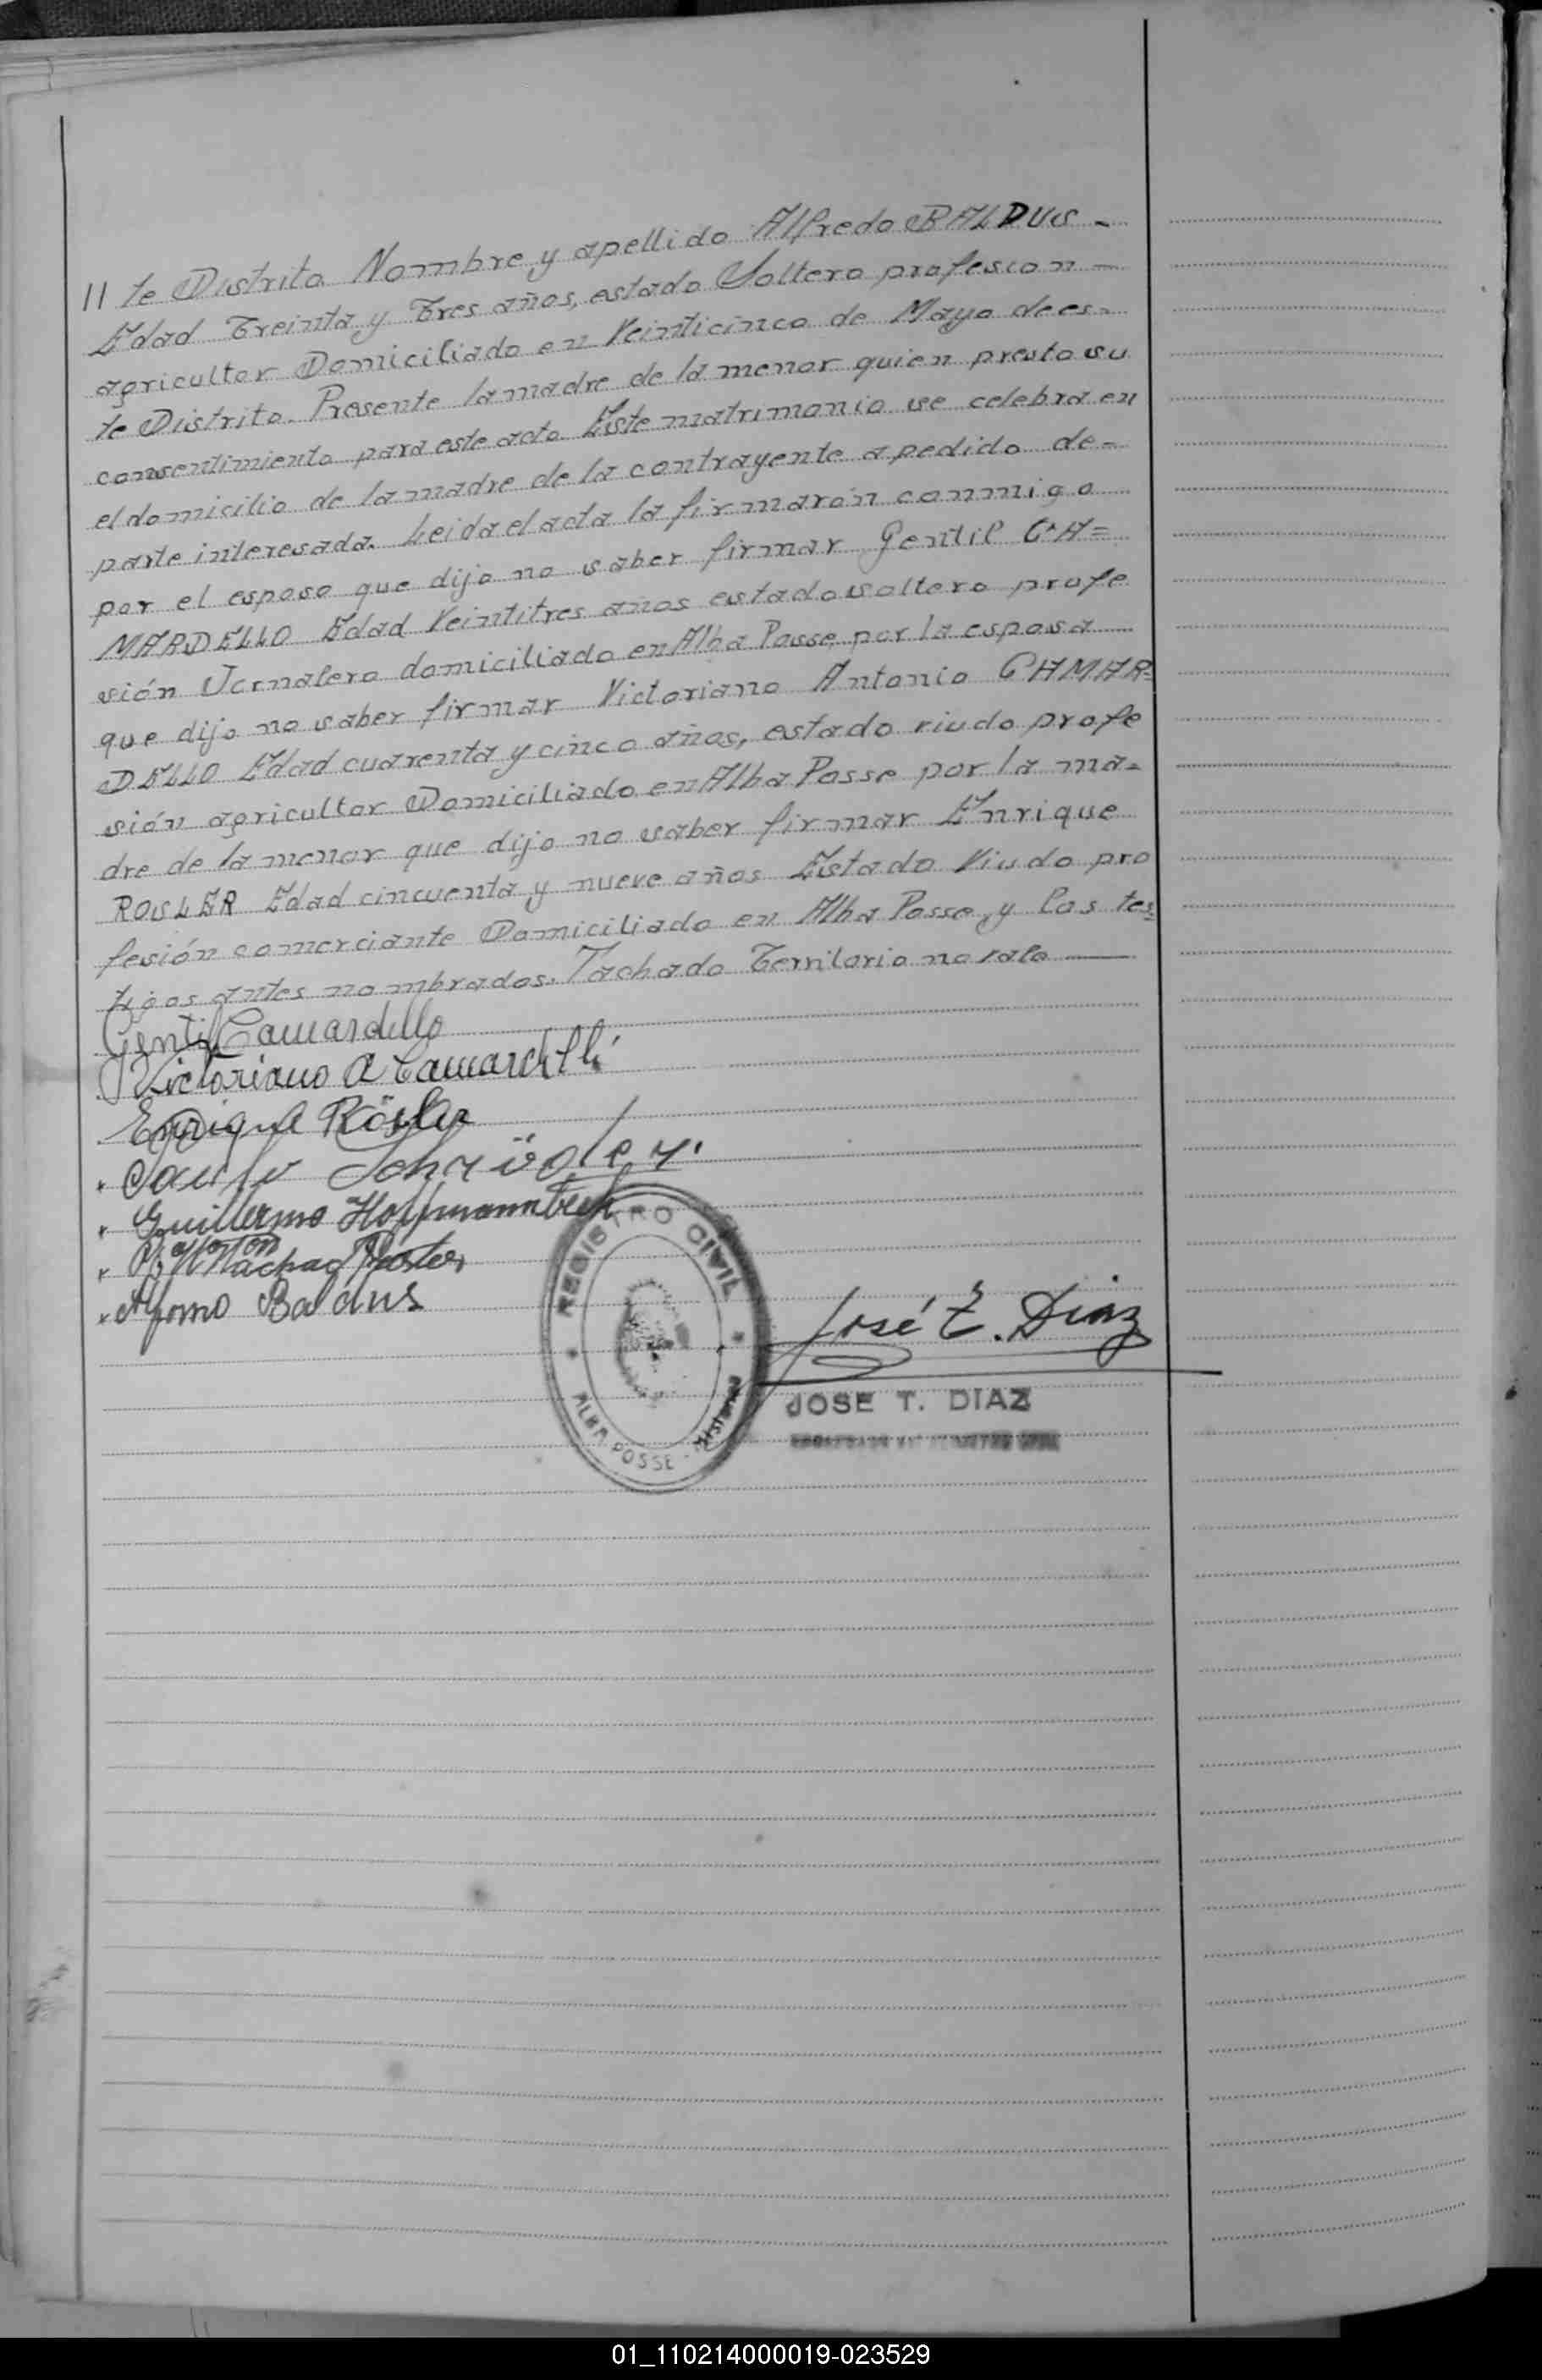 11 te Distrito Nombre y apellido Alfredo BALDUS -
Edad Treinta y Tres años, estado Soltero profesion -
agricultor Domiciliado en Veinticinco de Mayo de es-
te Distrito. Presente la madre de la menor quien presta su
consentimiento para este acto Este matrimonio se celebra en
el domicilio de la madre de la contrayente a pedido de-
parte interesada. Leida el acta la firmaron conmigo
por el esposo que dijo no saber firmar Gentil CA=
MARDELLO Edad Veintitres años estado soltero profe
sión Jornalero domiciliado en Alba Posse, por la esposa
que dijo no saber firmar Victoriano Antonio CAMAR=
DELLO Edad cuarenta y cinco años, estado viudo profe
sión agricultor Domiciliado en Alba Posse por la ma-
dre de la menor que dijo no saber firmar Enrique
ROSLER Edad cincuenta y nueve años Estado Viudo pro
fesión comerciante Domiciliado en Alba Posse, y los tes=
tigos antes nombrados. Tachado Territorio no vale
Gentil Camardello
Victoriano A Camardelli
Enrique Rösler
Guillermo Hoffmannbeck
Baldus
REGISTRO CIVIL
ALBA POSSE - Misiones
José T. Diaz
JOSE T. DIAZ
01_110214000019-023529